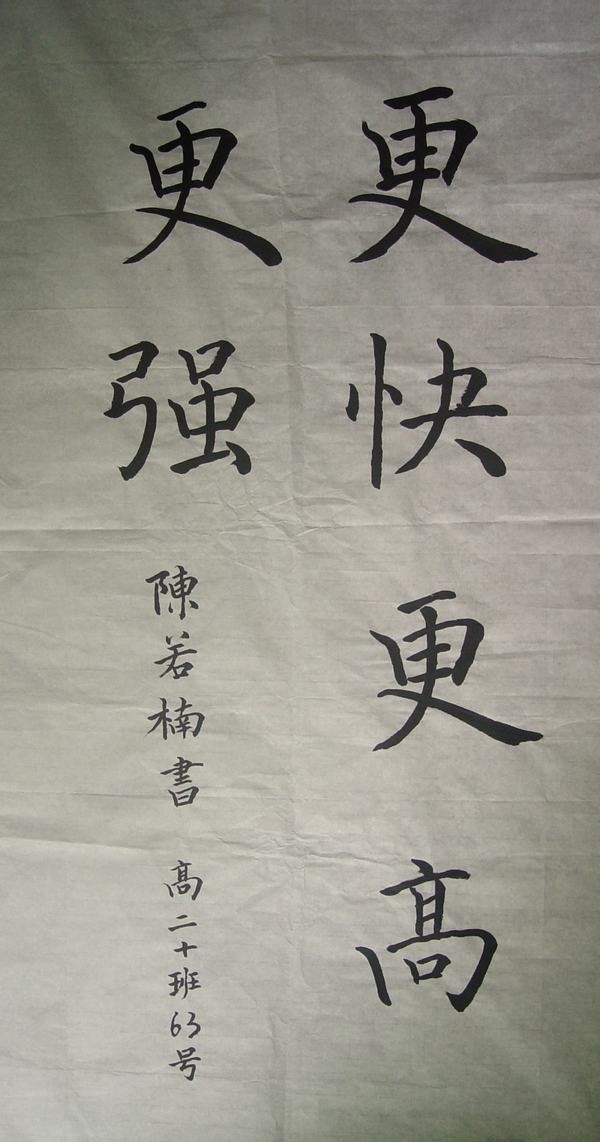 更快更髙
更强
陳若楠書 髙二十班63号